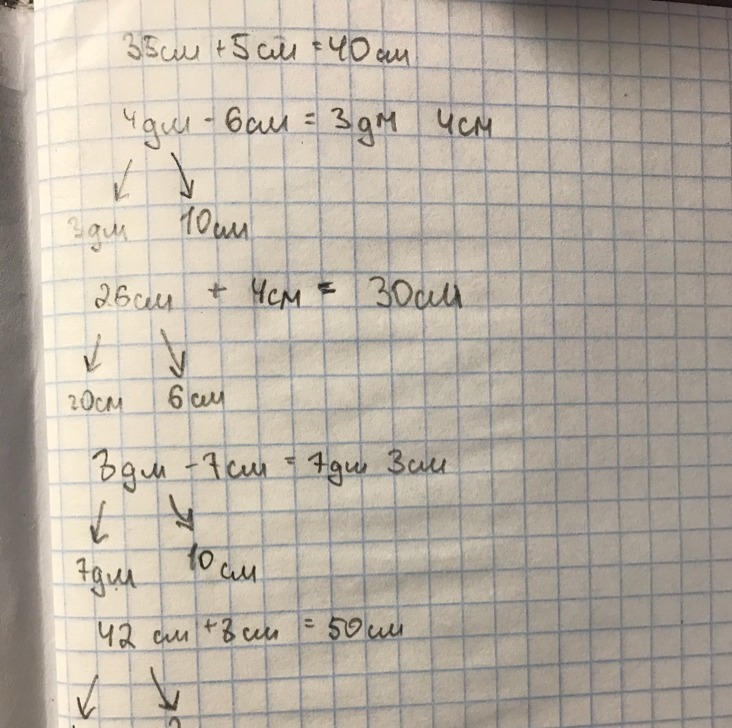 35см + 5см = 40см
4дм - 6см = 3дм 4см
3дм 10см
26см + 4см = 30см
20см 6см
8дм - 7см = 7дм 3см
7дм 10см
42 см + 8см = 50см